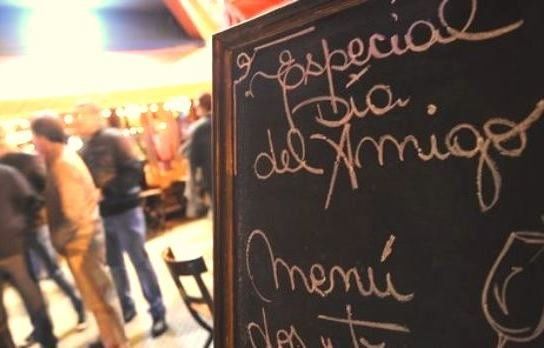 Especial
Día
del Amigo
Menú
dos